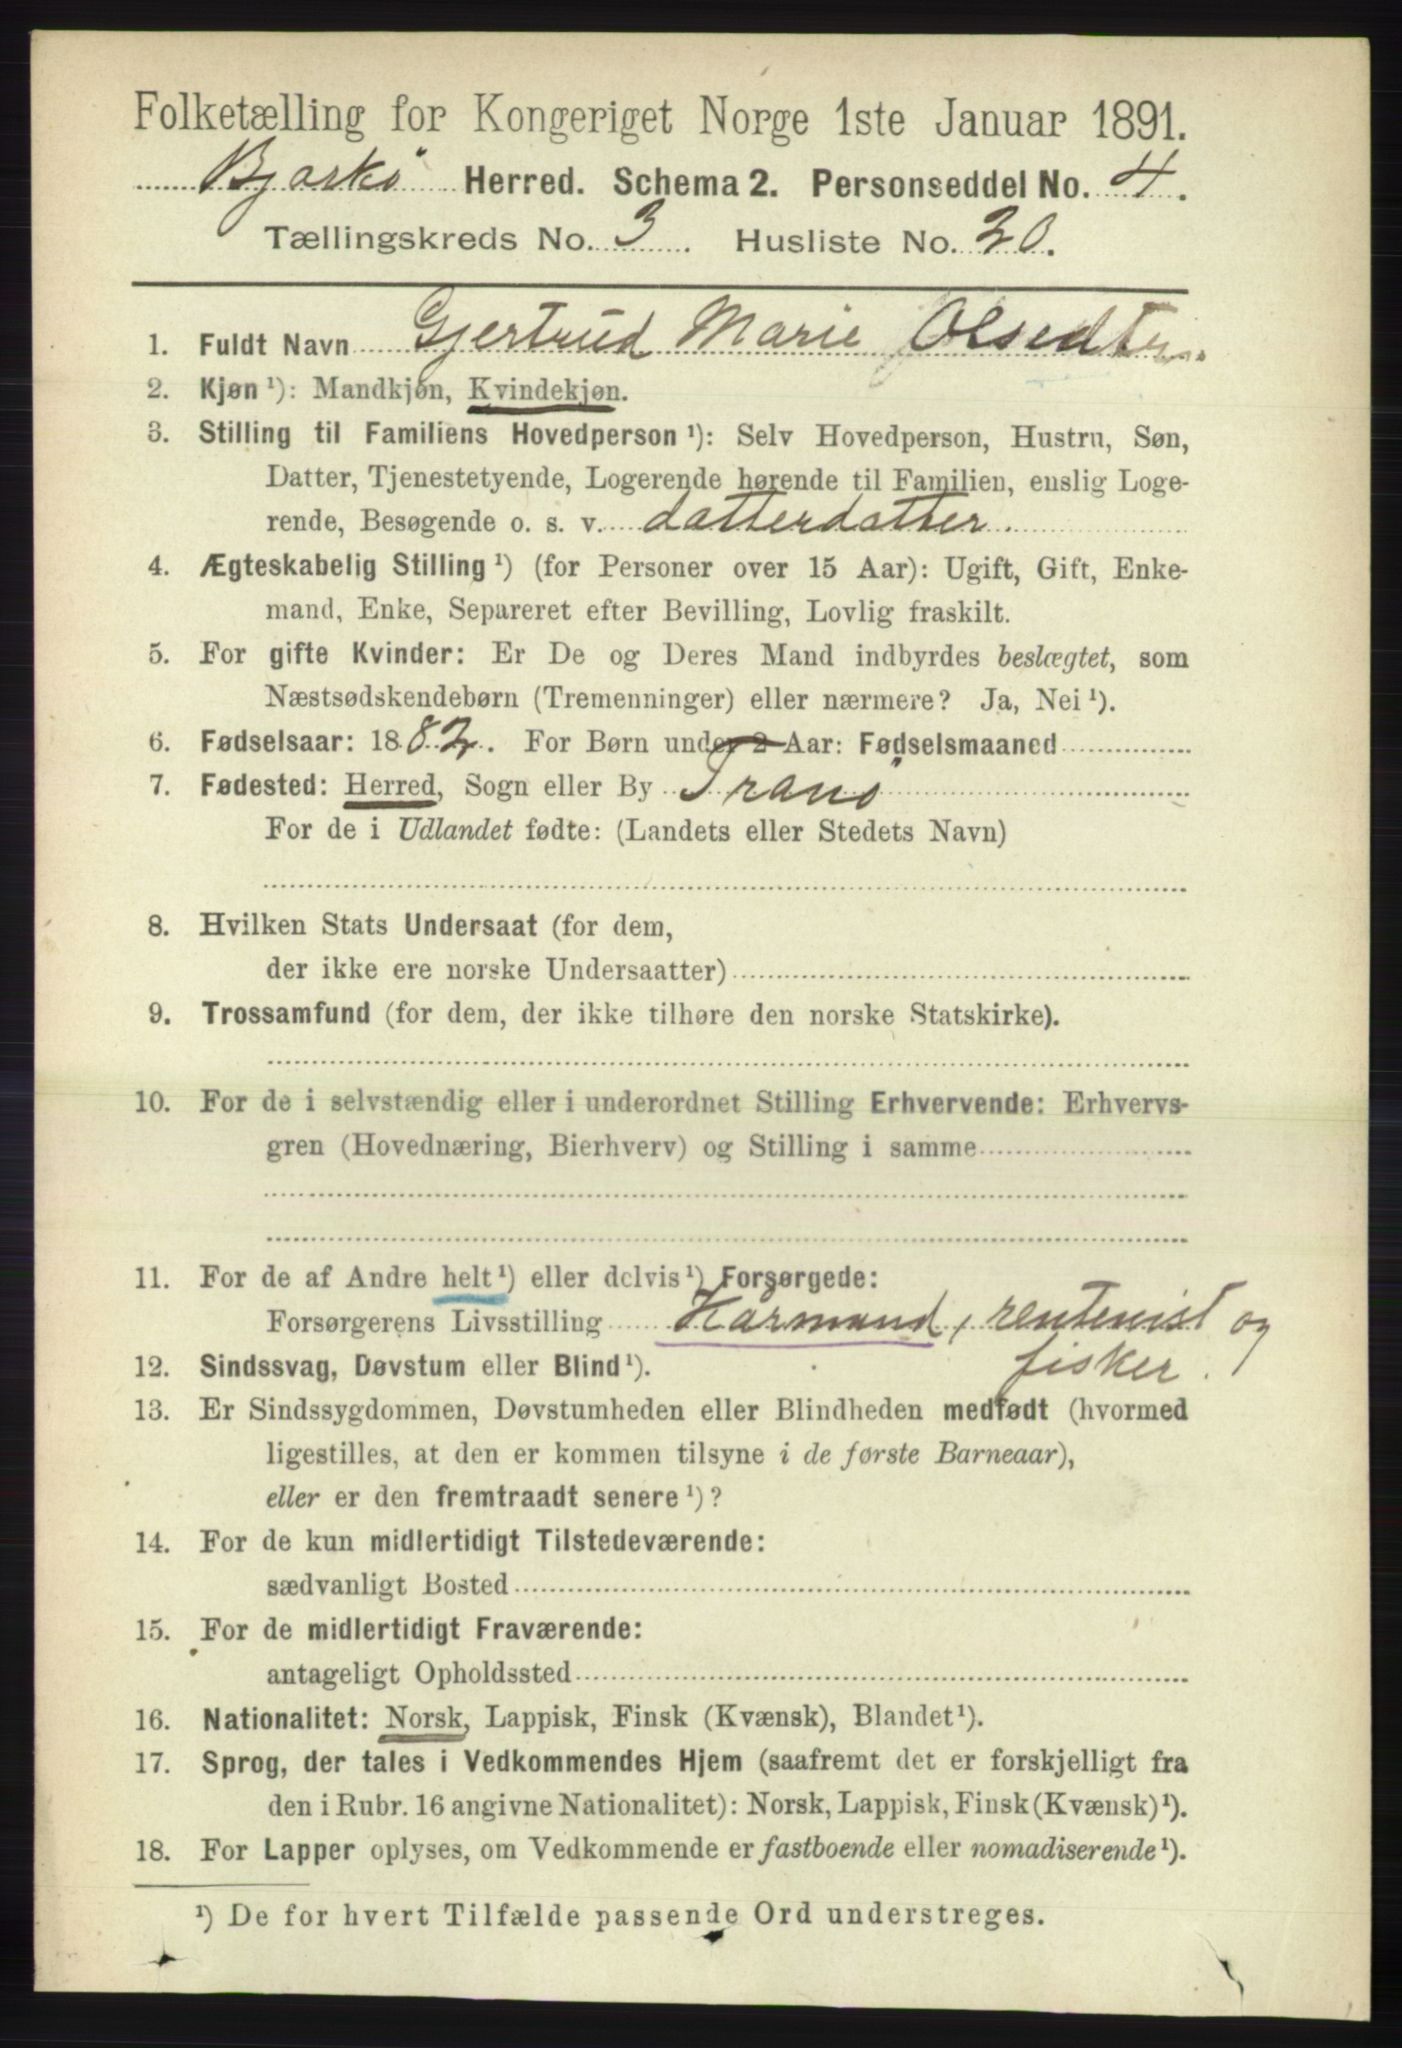 Folketælling for Kongeriget Norge 1ste Januar 1891.
Bjarkö Herred. Schema 2. Personseddel No. 4.
Tællingskreds No. 3. Husliste No. 20.
1. Fuldt Navn Gjertrud Marie Olsedtr.
2. Kjøn ¹): Mandkjøn, Kvindekjøn.
3. Stilling til Familiens Hovedperson ¹): Selv Hovedperson, Hustru, Søn,
Datter, Tjenestetyende, Logerende hørende til Familien, enslig Loge-
rende, Besøgende o. s. v. datterdatter.
4. Ægteskabelig Stilling ¹) (for Personer over 15 Aar): Ugift, Gift, Enke-
mand, Enke, Separeret efter Bevilling, Lovlig fraskilt.
5. For gifte Kvinder: Er De og Deres Mand indbyrdes beslægtet, som
Næstsødskendebørn (Tremenninger) eller nærmere? Ja, Nei ¹).
6. Fødselsaar: 1882. For Børn under 2 Aar: Fødselsmaaned
7. Fødested: Herred, Sogn eller By Tranö
For de i Udlandet fødte: (Landets eller Stedets Navn)
8. Hvilken Stats Undersaat (for dem,
der ikke ere norske Undersaatter)
9. Trossamfund (for dem, der ikke tilhøre den norske Statskirke).
10. For de i selvstændig eller i underordnet Stilling Erhvervende: Erhvervs-
gren (Hovednæring, Bierhverv) og Stilling i samme
11. For de af Andre helt ¹) eller delvis ¹) Forsørgede:
Forsørgerens Livsstilling Kårmand, rentenist og
fisker.
12. Sindssvag, Døvstum eller Blind ¹).
13. Er Sindssygdommen, Døvstumheden eller Blindheden medfødt (hvormed
ligestilles, at den er kommen tilsyne i de første Barneaar),
eller er den fremtraadt senere ¹)?
14. For de kun midlertidigt Tilstedeværende:
sædvanligt Bosted
15. For de midlertidigt Fraværende:
antageligt Opholdssted
16. Nationalitet: Norsk, Lappisk, Finsk (Kvænsk), Blandet ¹).
17. Sprog, der tales i Vedkommendes Hjem (saafremt det er forskjelligt fra
den i Rubr. 16 angivne Nationalitet): Norsk, Lappisk, Finsk (Kvænsk) ¹).
18. For Lapper oplyses, om Vedkommende er fastboende eller nomadiserende ¹).
¹) De for hvert Tilfælde passende Ord understreges.